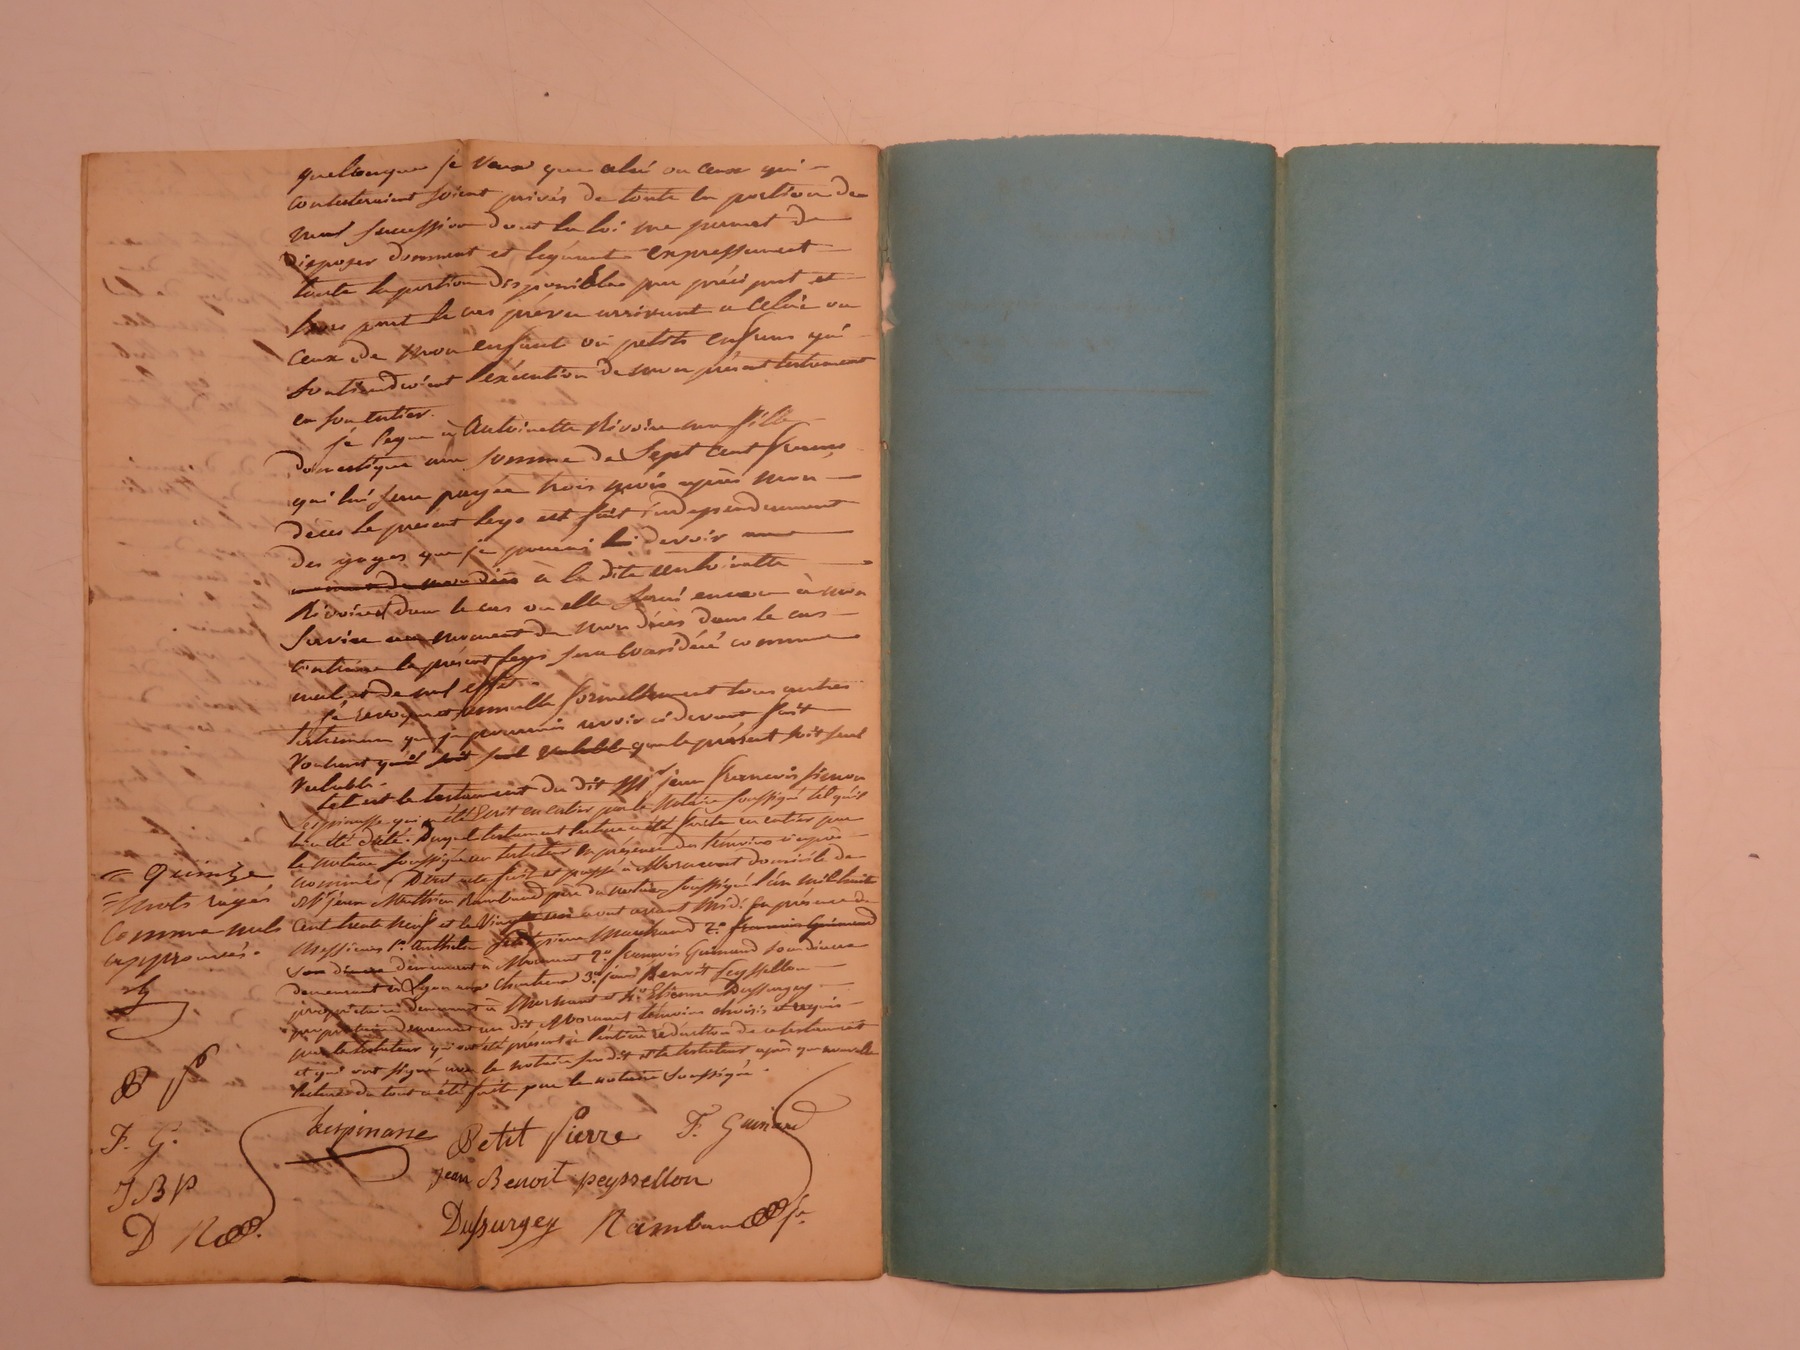 quelconque je veux que celui ou ceux qui
contesteraient soient privés de toute la portion de
ma succession dont la loi me permet de
disposer donnant et léguant expressement
toute la portion disponible par préciput et
hors part le cas prévu arrivant a celui ou
ceux de mon enfant ou petits enfans qui
soutiendroient l'exécution de mon présent testament
en son entier.
Je legue à Antoinette Rivoire ma fille
domestique une somme de Sept Cent francs
qui lui sera payée trois mois après mon
décès le présent legs est fait independamment
des gages que je pourrai lui devoir
de mon décès à la dite antoinette
Rivoire dans le cas ou elle serai encore à mon
Service au moment de mon décès dans le cas
contraire le présent legs sera Considéré comme
nul et de nul effet.
Je revoque et annulle formellement tous autres
testamens que je pourrais avoir ci devant fait
Voulant qu'il soit seul valable que le présent soit seul
valable.
tel est le testament du dit Mr jean françois simon
Lespinasse qui a été Ecrit en entier par le Notaire soussigné tel qu'il
lui a été dicté. Duquel testament lecture a été faite en entier par
le notaire soussigné au testateur en présence des témoins ci après
nommés. Dont acte fait et passé à Mornant domicile de
Mr jean Mathieu Rambaud père du notaire soussigné l'an mil huit
Cent trente neuf et le Vingt avant midi en présence de
Messieurs 1o petit pierre Marchand 2o françois Guimand
demeurant à Mornant 2o françois Guimand
demeurant à Lyon aux Chartreux 3o jean Benoit Peyssellon
propriétaire demeurant à Mornant et 4o Etienne Dussurgey
propriétaire demeurant au dit Mornant témoins choisis et requis
par le testateur qui ont été présent à l'entière rédaction de ce testament
et qui ont signé avec le notaire susdit et le testateur après que nouvelle
lecture du tout a été faite par le notaire soussigné.
= quinze
= mots rayés
Comme nuls
approuvés.
F. G.
J B P
D R
Lespinasse Petit Pierre F. Guimand
jean Benoit peyssellon
Dussurgey Rambaud